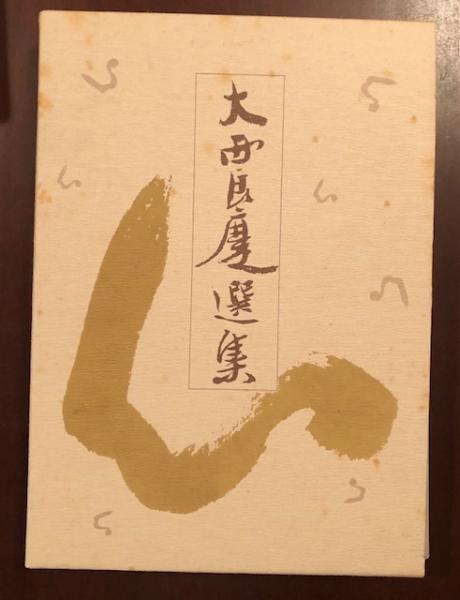 大西良慶選集